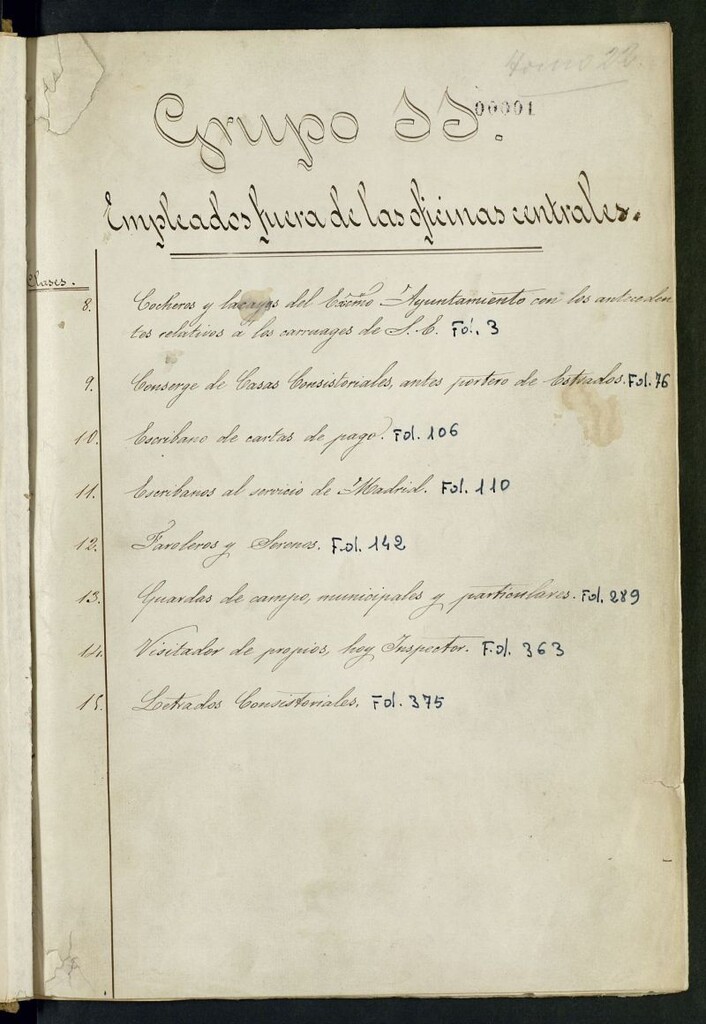 Tomo 22.
00001
Grupo II.
Empleados fuera de las oficinas centrales.
Clases.
8. Cocheros y lacayos del Excmo Ayuntamiento con los anteceden
tes relativos á los carruages de S. E. Fol. 3
9. Conserge de Casas Consistoriales, antes portero de Estrados. Fol. 76
10. Escribano de cartas de pago. Fol. 106
11. Escribanos al servicio de Madrid. Fol. 110
12. Faroleros y Serenos. Fol. 142
13. Guardas de campo, municipales y particulares. Fol. 289
14. Visitador de propios, hoy Inspector. Fol. 363
15. Letrados Consistoriales. Fol. 375